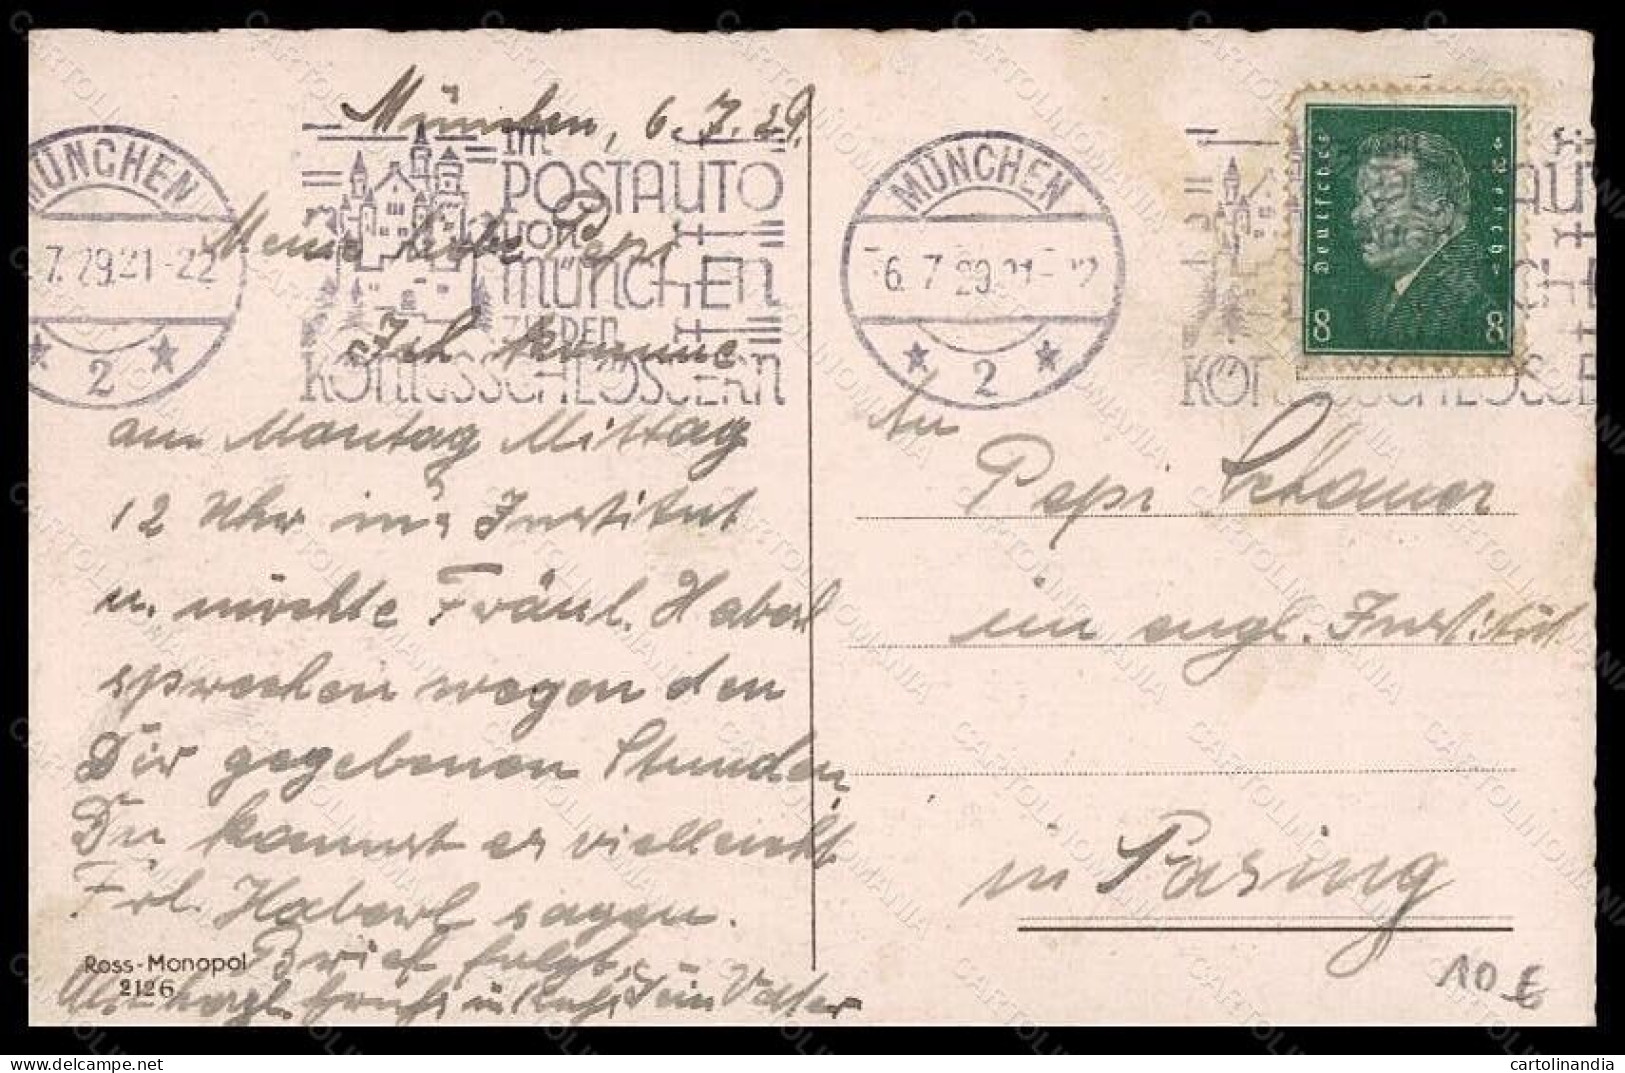 München, 6.7.29.
Meine liebe Pepi
Ich komme
am Montag Mittag
12 Uhr ins Institut
u. möchte Fräul. Haberl
sprechen wegen den
Dir gegebenen Stunden
Du kannst es vielleicht
Frl. Haberl sagen.
Brief folgt.
herzl. Dein Vater
Ross-Monopol
2126
MÜNCHEN
7.29.21-22
2
Im
POSTAUTO
von
MÜNCHEN
ZU DEN
KÖNIGSSCHLÖSSERN
MÜNCHEN
6.7.29.21-22
2
Deutsches Reich
8 8
An
Pepi
im engl. Institut
in Pasing
10 €
CARTOLINOMANIA
cartolinandia